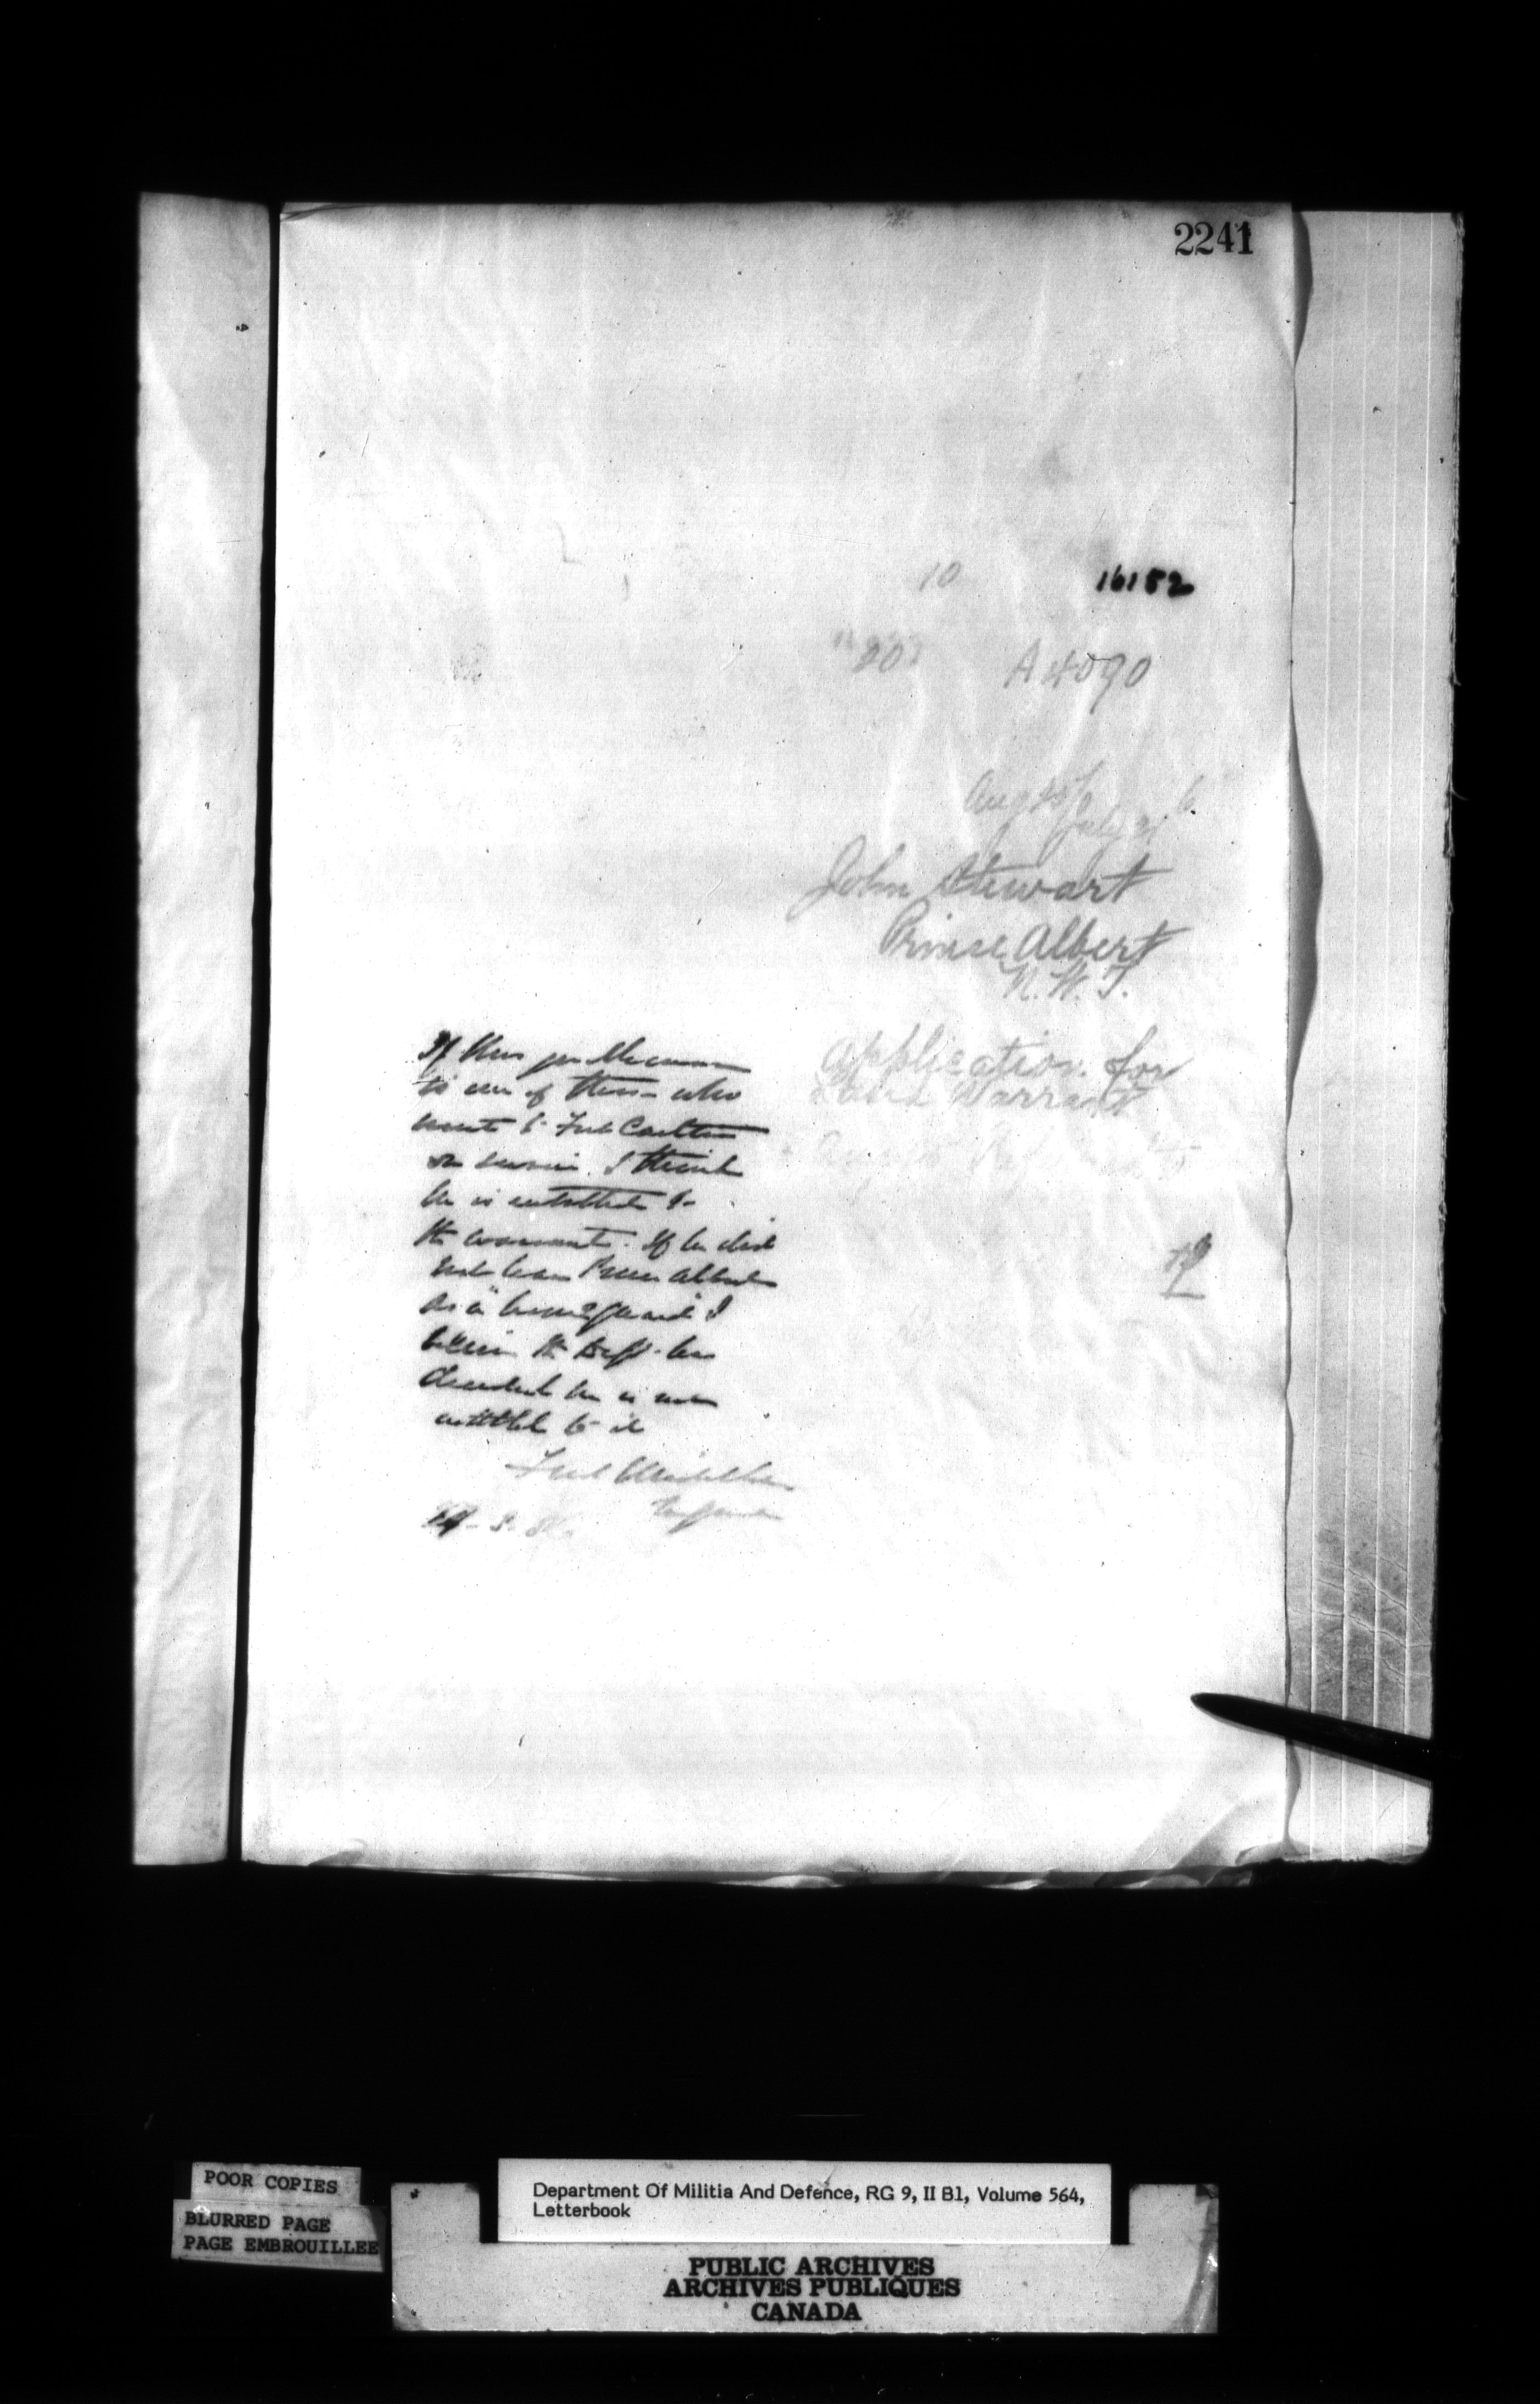 2241
10
16152
20
A 4090
Aug 25 / July 31
John Stewart
Prince Albert
N. W. T.
Application for
Land Warrant
If this gentleman
is one of those who
went to Fort Carlton
on service. I think
he is entitled to
the warrant. If he did
not leave Prince Albert
as a home guard I
believe the Dept. has
decided he is not
entitled to it
Fred Middleton
M Genl
POOR COPIES
BLURRED PAGE
PAGE EMBROUILLEE
Department Of Militia And Defence, RG 9, II B1, Volume 564,
Letterbook
PUBLIC ARCHIVES
ARCHIVES PUBLIQUES
CANADA